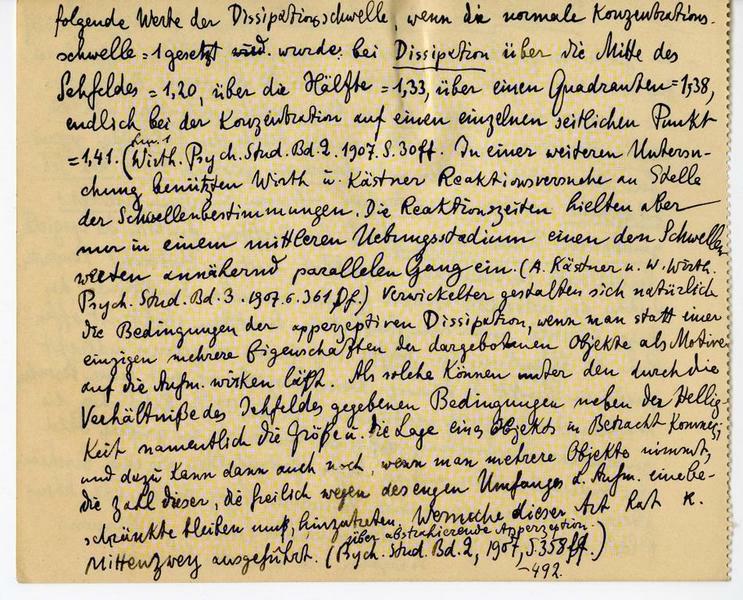 folgende Werte der Dissipationsschwelle, wenn die normale Konzentrations-
schwelle = 1 gesetzt wird. wurde: bei Dissipation über die Mitte des
Sehfeldes = 1,20, über die Hälfte = 1,33, über einen Quadranten = 1,38,
endlich bei der Konzentration auf einen einzelnen seitlichen Punkt
= 1,41. (Wirth. Psych. Stud. Bd. 2. 1907. S. 30ff. In einer weiteren Untersu-
chung benützten Wirth u. Kästner Reaktionsversuche an Stelle
der Schwellenbestimmungen. Die Reaktionszeiten hielten aber
nur in einem mittleren Uebungsstadium einen den Schwellen
werten annähernd parallelen Gang ein. (A. Kästner u. W. Wirth.
Psych. Stud. Bd. 3. 1907. S. 361 ff.) Verwickelter gestalten sich natürlich
die Bedingungen der apperzeptiven Dissipation, wenn man statt einer
einzigen mehrere Eigenschaften der dargebotenen Objekte als Motive
auf die Aufm. wirken läßt. Als solche können unter den durch die
Verhältniße des Sehfeldes gegebenen Bedingungen neben der Hellig-
keit namentlich die Größe u. die Lage eines Objekts in Betracht kommen;
und dazu kann dann auch noch, wenn man mehrere Objekte nimmt,
die Zahl dieser, die freilich wegen des engen Umfanges d. Aufm. eine be-
schränkte bleiben muß, hinzutreten. Versuche dieser Art hat K.
über abstrahierende Apperzeption.
Mittenzwey ausgeführt. (Psych. Stud. Bd. 2, 1907, S. 358 ff.)
-492.